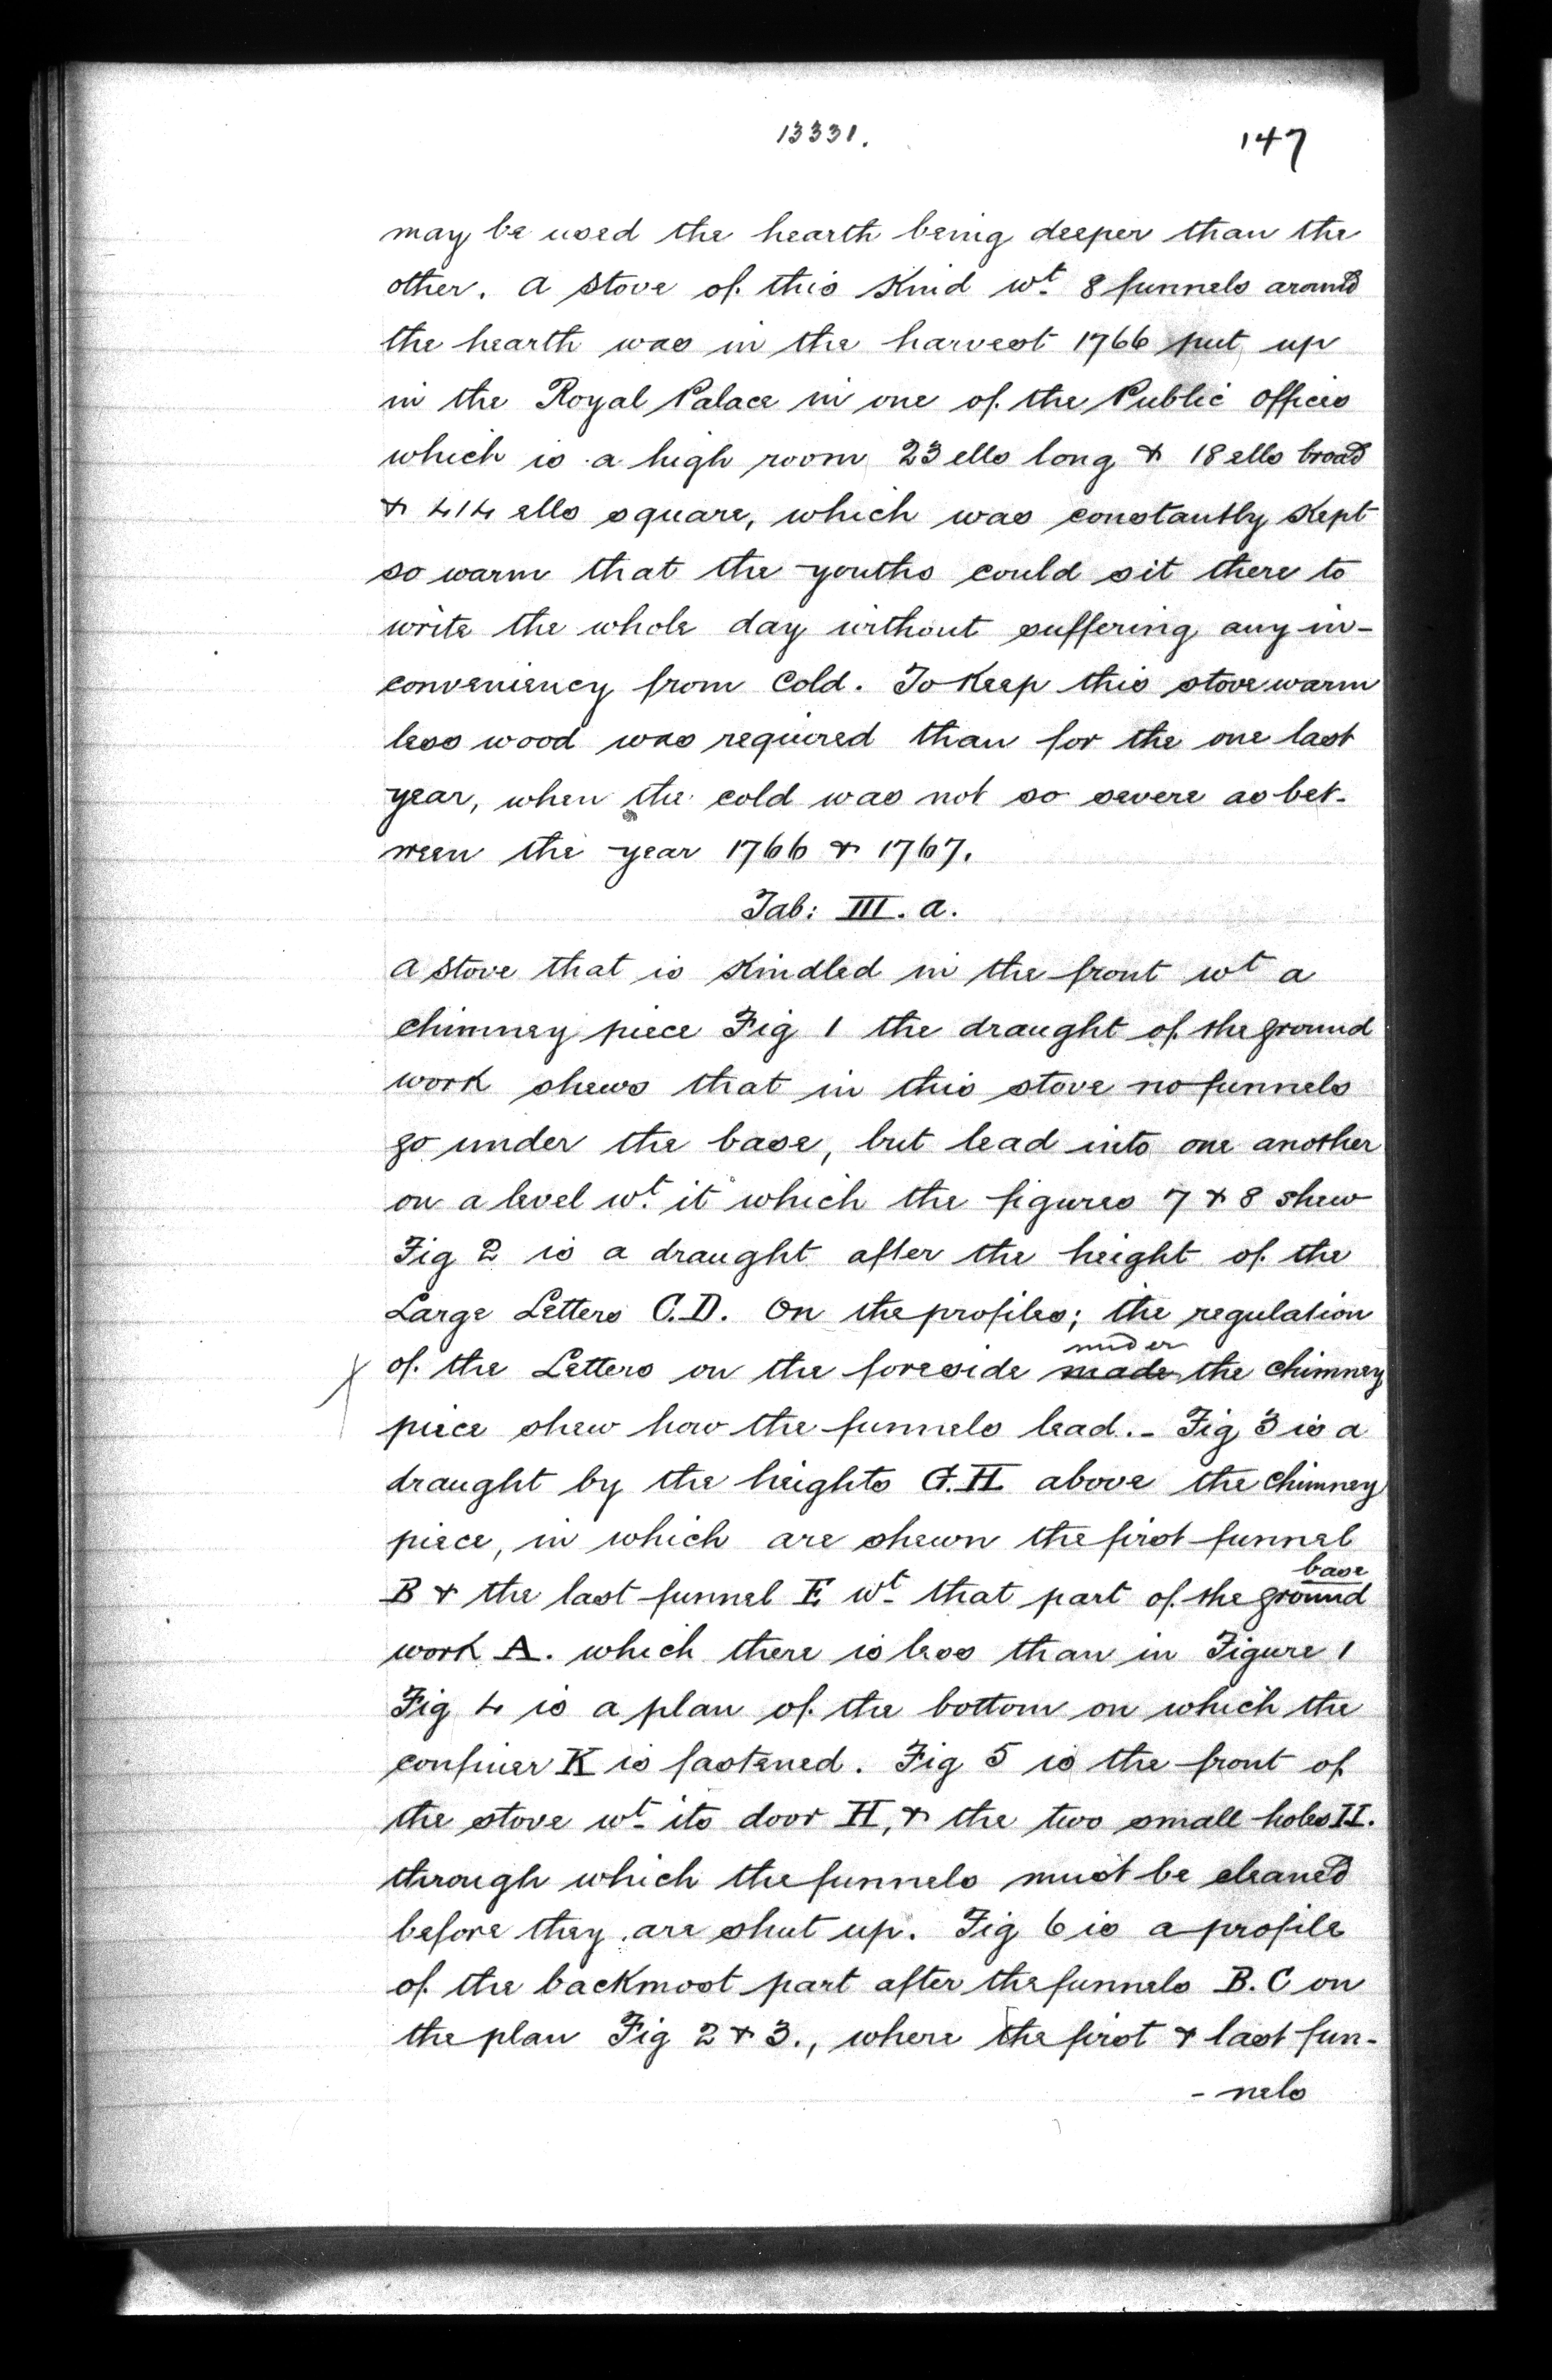 13331.
147
may be used the hearth being deeper than the
other. A Stove of this Kind wt. 8 funnels around
the hearth was in the harvest 1766 put up
in the Royal Palace in one of the Public Offices
which is a high room 23 ells long & 18 ells broad
& 414 ells square, which was constantly Kept
so warm that the youths could sit there to
write the whole day without suffering any in-
conveniency from Cold. To Keep this stove warm
less wood was required than for the one last
year, when the cold was not so severe as bet-
ween the year 1766 & 1767.
Tab: III. a.
A Stove that is Kindled in the front wt a
chimney piece Fig 1 the draught of the ground
work shews that in this stove no funnels
go under the base, but lead into one another
on a level wt. it which the figures 7 & 8 shew
Fig 2 is a draught after the height of the
Large Letters C.D. On the profiles; the regulation
under
of the Letters on the foreside made the Chimney
piece shew how the funnels lead.- Fig 3 is a
draught by the heights G.H above the Chimney
piece, in which are shewn the first funnel
base
B & the last funnel E wt. that part of the ground
work A. which there is less than in Figure 1
Fig 4 is a plan of the bottom on which the
confiner K is fastened. Fig 5 is the front of
the stove wt. its door H, & the two small holes II.
through which the funnels must be cleaned
before they are shut up. Fig 6 is a profile
of the backmost part after the funnels B.C on
the plan Fig 2 & 3., where the first & last fun-
- nels